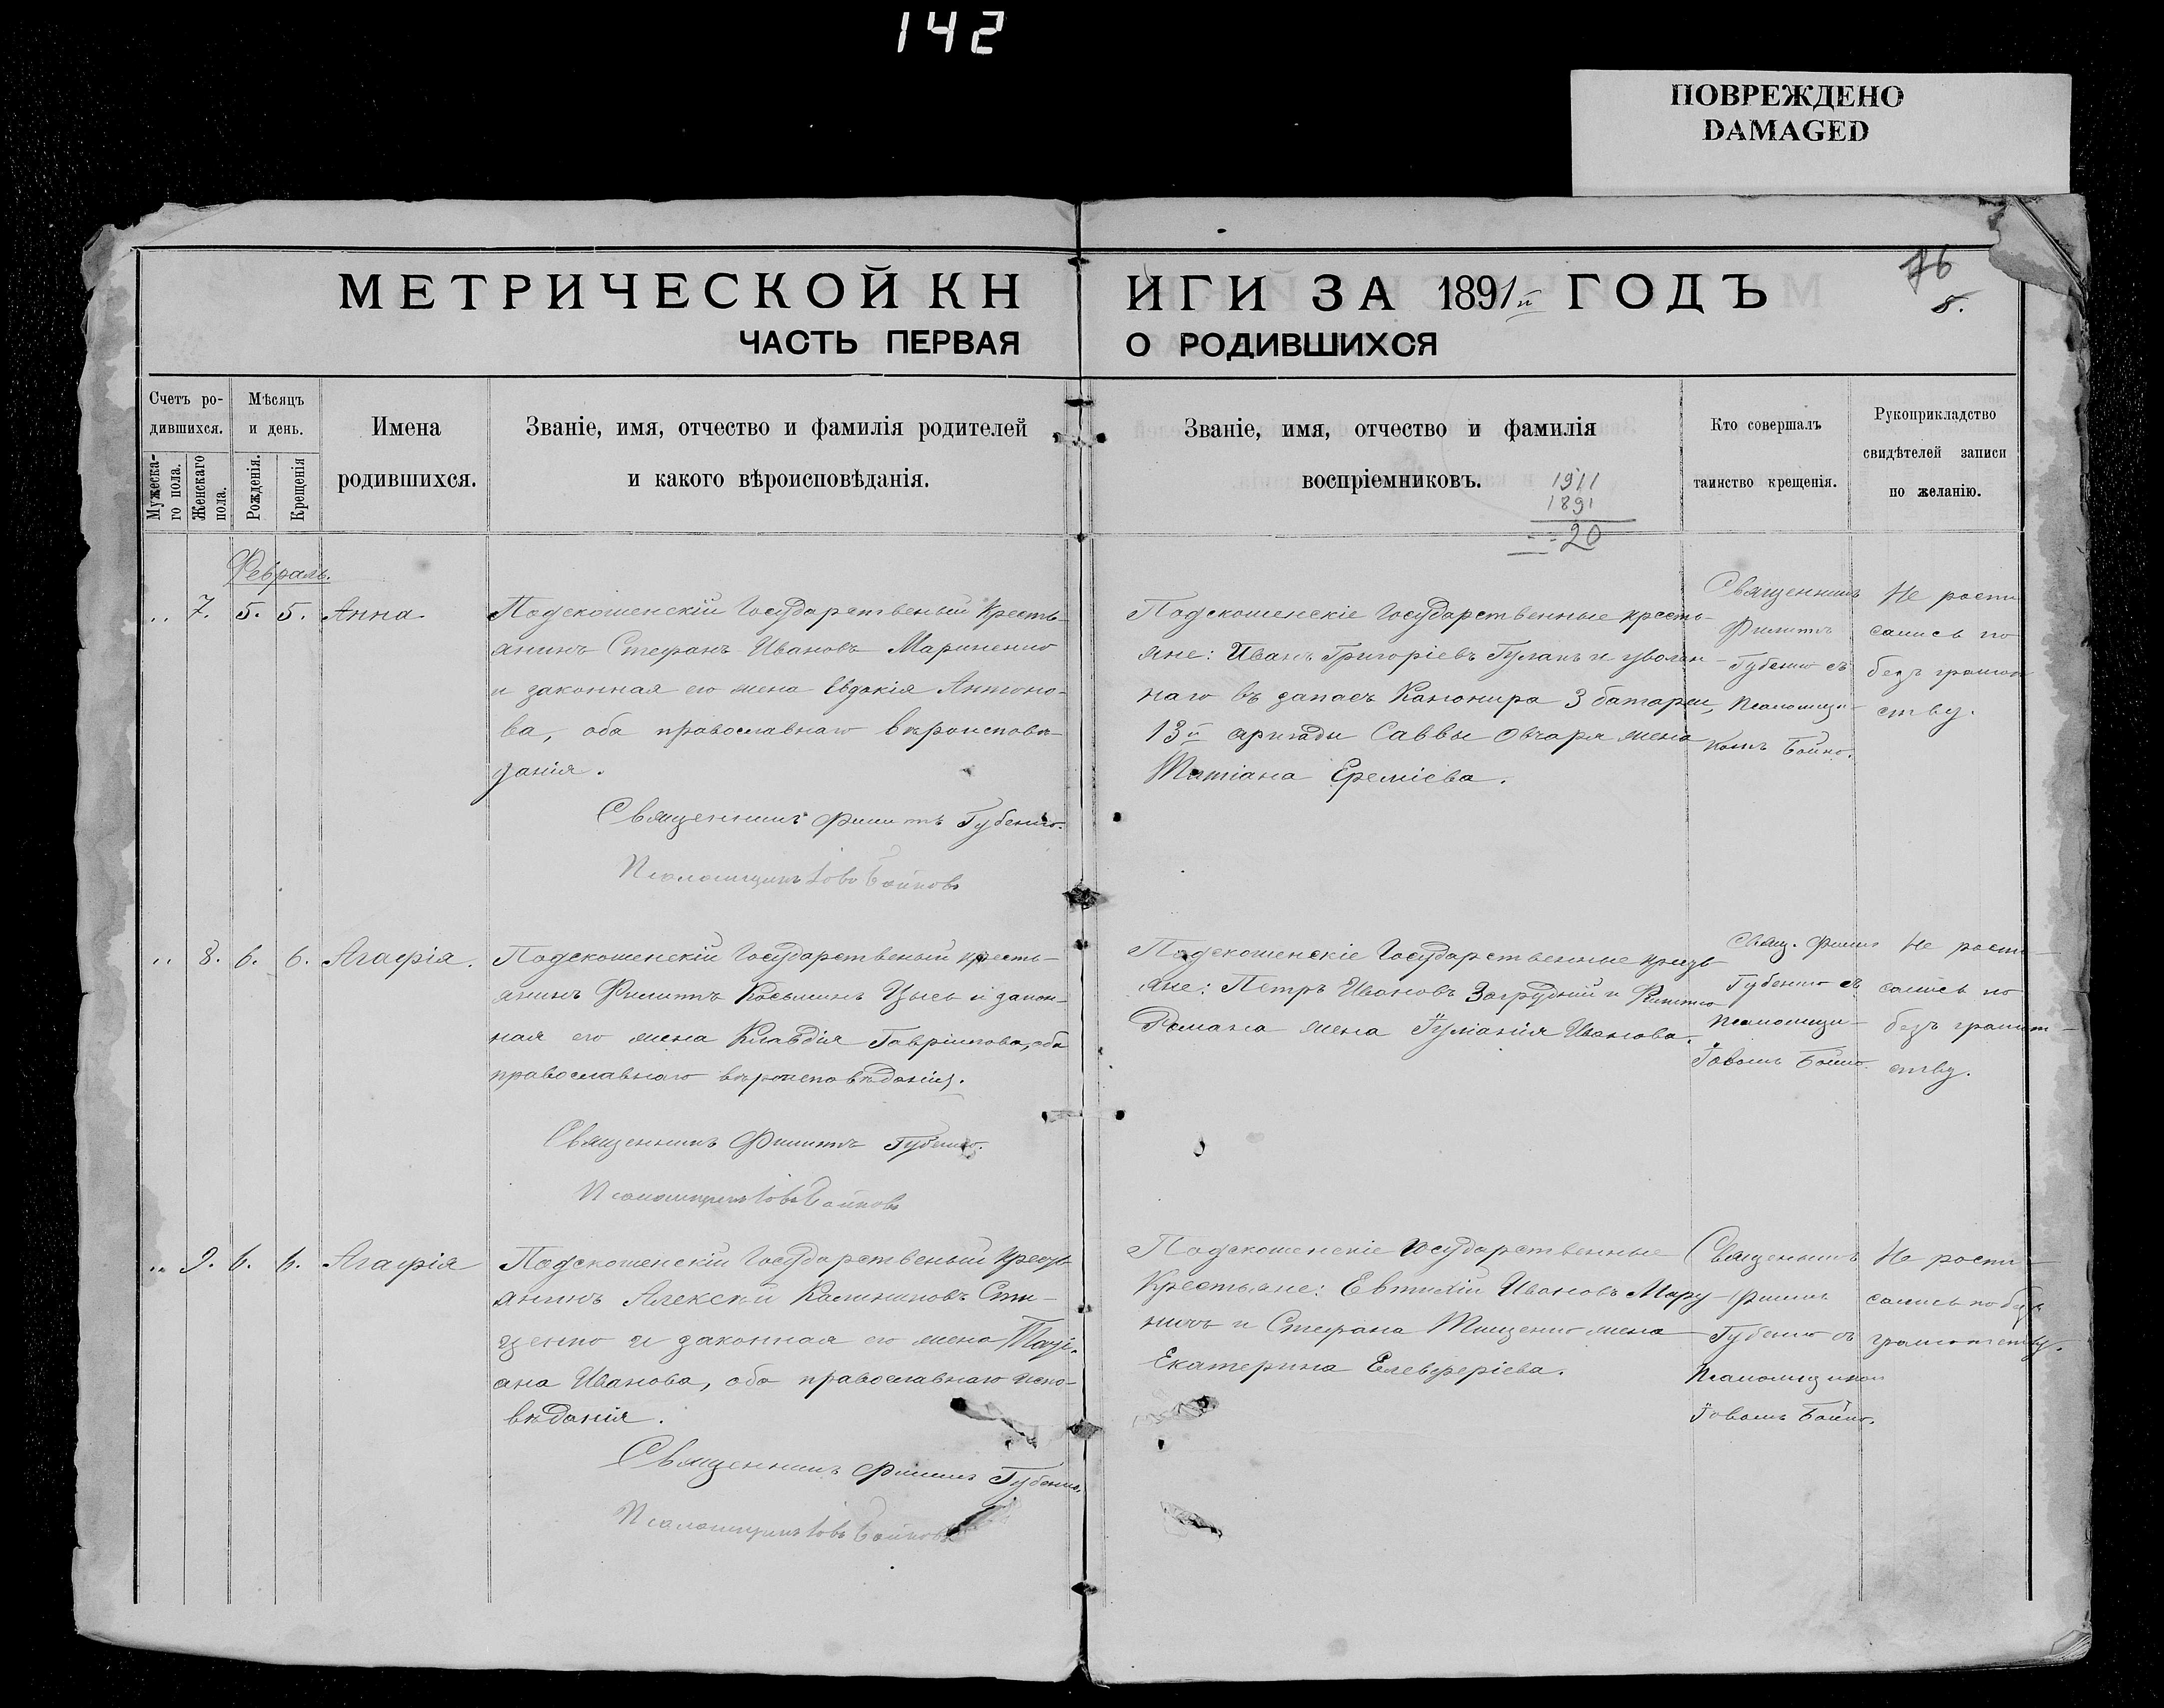 142
ПОВРЕЖДЕНО
DAMAGED
МЕТРИЧЕСКОЙ КНИГИ ЗА 1891й ГОДЪ
76
8.
ЧАСТЬ ПЕРВАЯ О РОДИВШИХСЯ
Счетъ ро-
дившихся.
Мужеска-
го пола.
Женскаго
пола.
Мѣсяцъ
и день.
Рожденія.
Крещенія
Имена
родившихся.
Званіе, имя, отчество и фамилія родителей
и какого вѣроисповѣданія.
Званіе, имя, отчество и фамилія
воспріемниковъ.
1911
1891
20
Кто совершалъ
таинство крещенія.
Рукоприкладство
свидѣтелей записи
по желанію.
Февраль.
7. 5. 5. Анна.
Подскошенскій Государственый Кресть-
янинъ Стефанъ Ивановъ Мариненко
и законная его жена Евдокія Антоно-
ва, оба православнаго вѣроисповѣ-
данія.
Священникъ Филиппъ Губенко.
Псаломщикъ Іовъ Бойковъ
Подскошенскіе Государственные кресть-
яне: Иванъ Григоріевъ Гулакъ и уволен-
наго въ запасъ Канонира 3 батареи,
13й бригады Саввы Овчаря жена
Татіана Ереміева.
Священникъ
Филиппъ
Губенко съ
Псаломщи-
комъ Бойко.
Не роспи
сались по
безъ грамот
ству.
8. 6. 6. Агафія.
Подскошенскій Государственый кресть-
янинъ Филиппъ Косьминъ Цысь и закон-
ная его жена Клавдія Гавріилова, оба
православнаго вѣроисповѣданія.
Священникъ Филиппъ Губенко.
Псаломщикъ Іовъ Бойковъ
Подскошенскіе Государственные кресть
яне: Петръ Ивановъ Загрудній и
Романа жена Іуліанія Иванова.
Свящ. Филип
Губенко съ
Псаломщи-
Іовомъ Бойко.
Не роспи-
сались по
безъ грамот-
ству.
9. 6. 6. Агафія
Подскошенскій Государственый Кресть
янинъ Алексѣй Калиниковъ Сти-
ценко и законная его жена Таті-
ана Иванова, оба православнаго испо-
вѣданія.
Священникъ Филиппъ Губенко.
Псаломщикъ Іовъ Бойковъ
Подскошенскіе Государственные
Крестьяне: Евтихій Ивановъ Мару-
ничъ и Стефана Тищенко жена
Екатерина Елевферіева.
Священникъ
Филипъ
Губенко съ
Псаломщиком
Іовомъ Бойко.
Не роспи-
сались по безъ
грамотству.